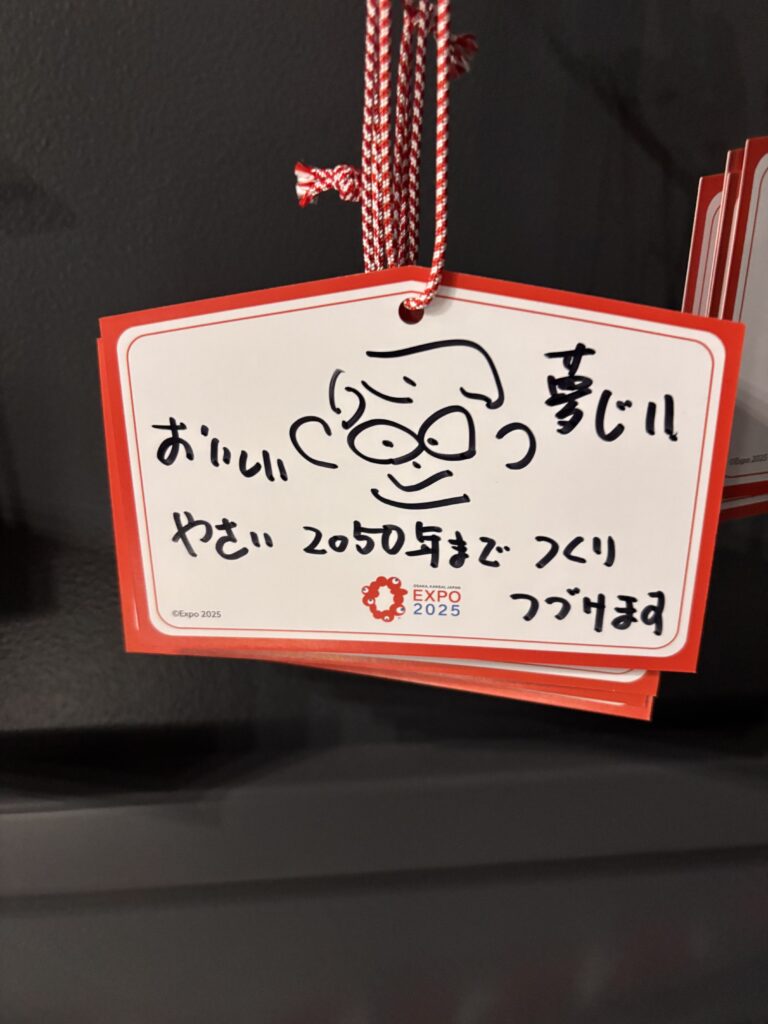 夢じい
おいしい
やさい 2050年まで つくり
つづけます
OSAKA, KANSAI, JAPAN
EXPO
2025
©Expo 2025
©Expo 2025